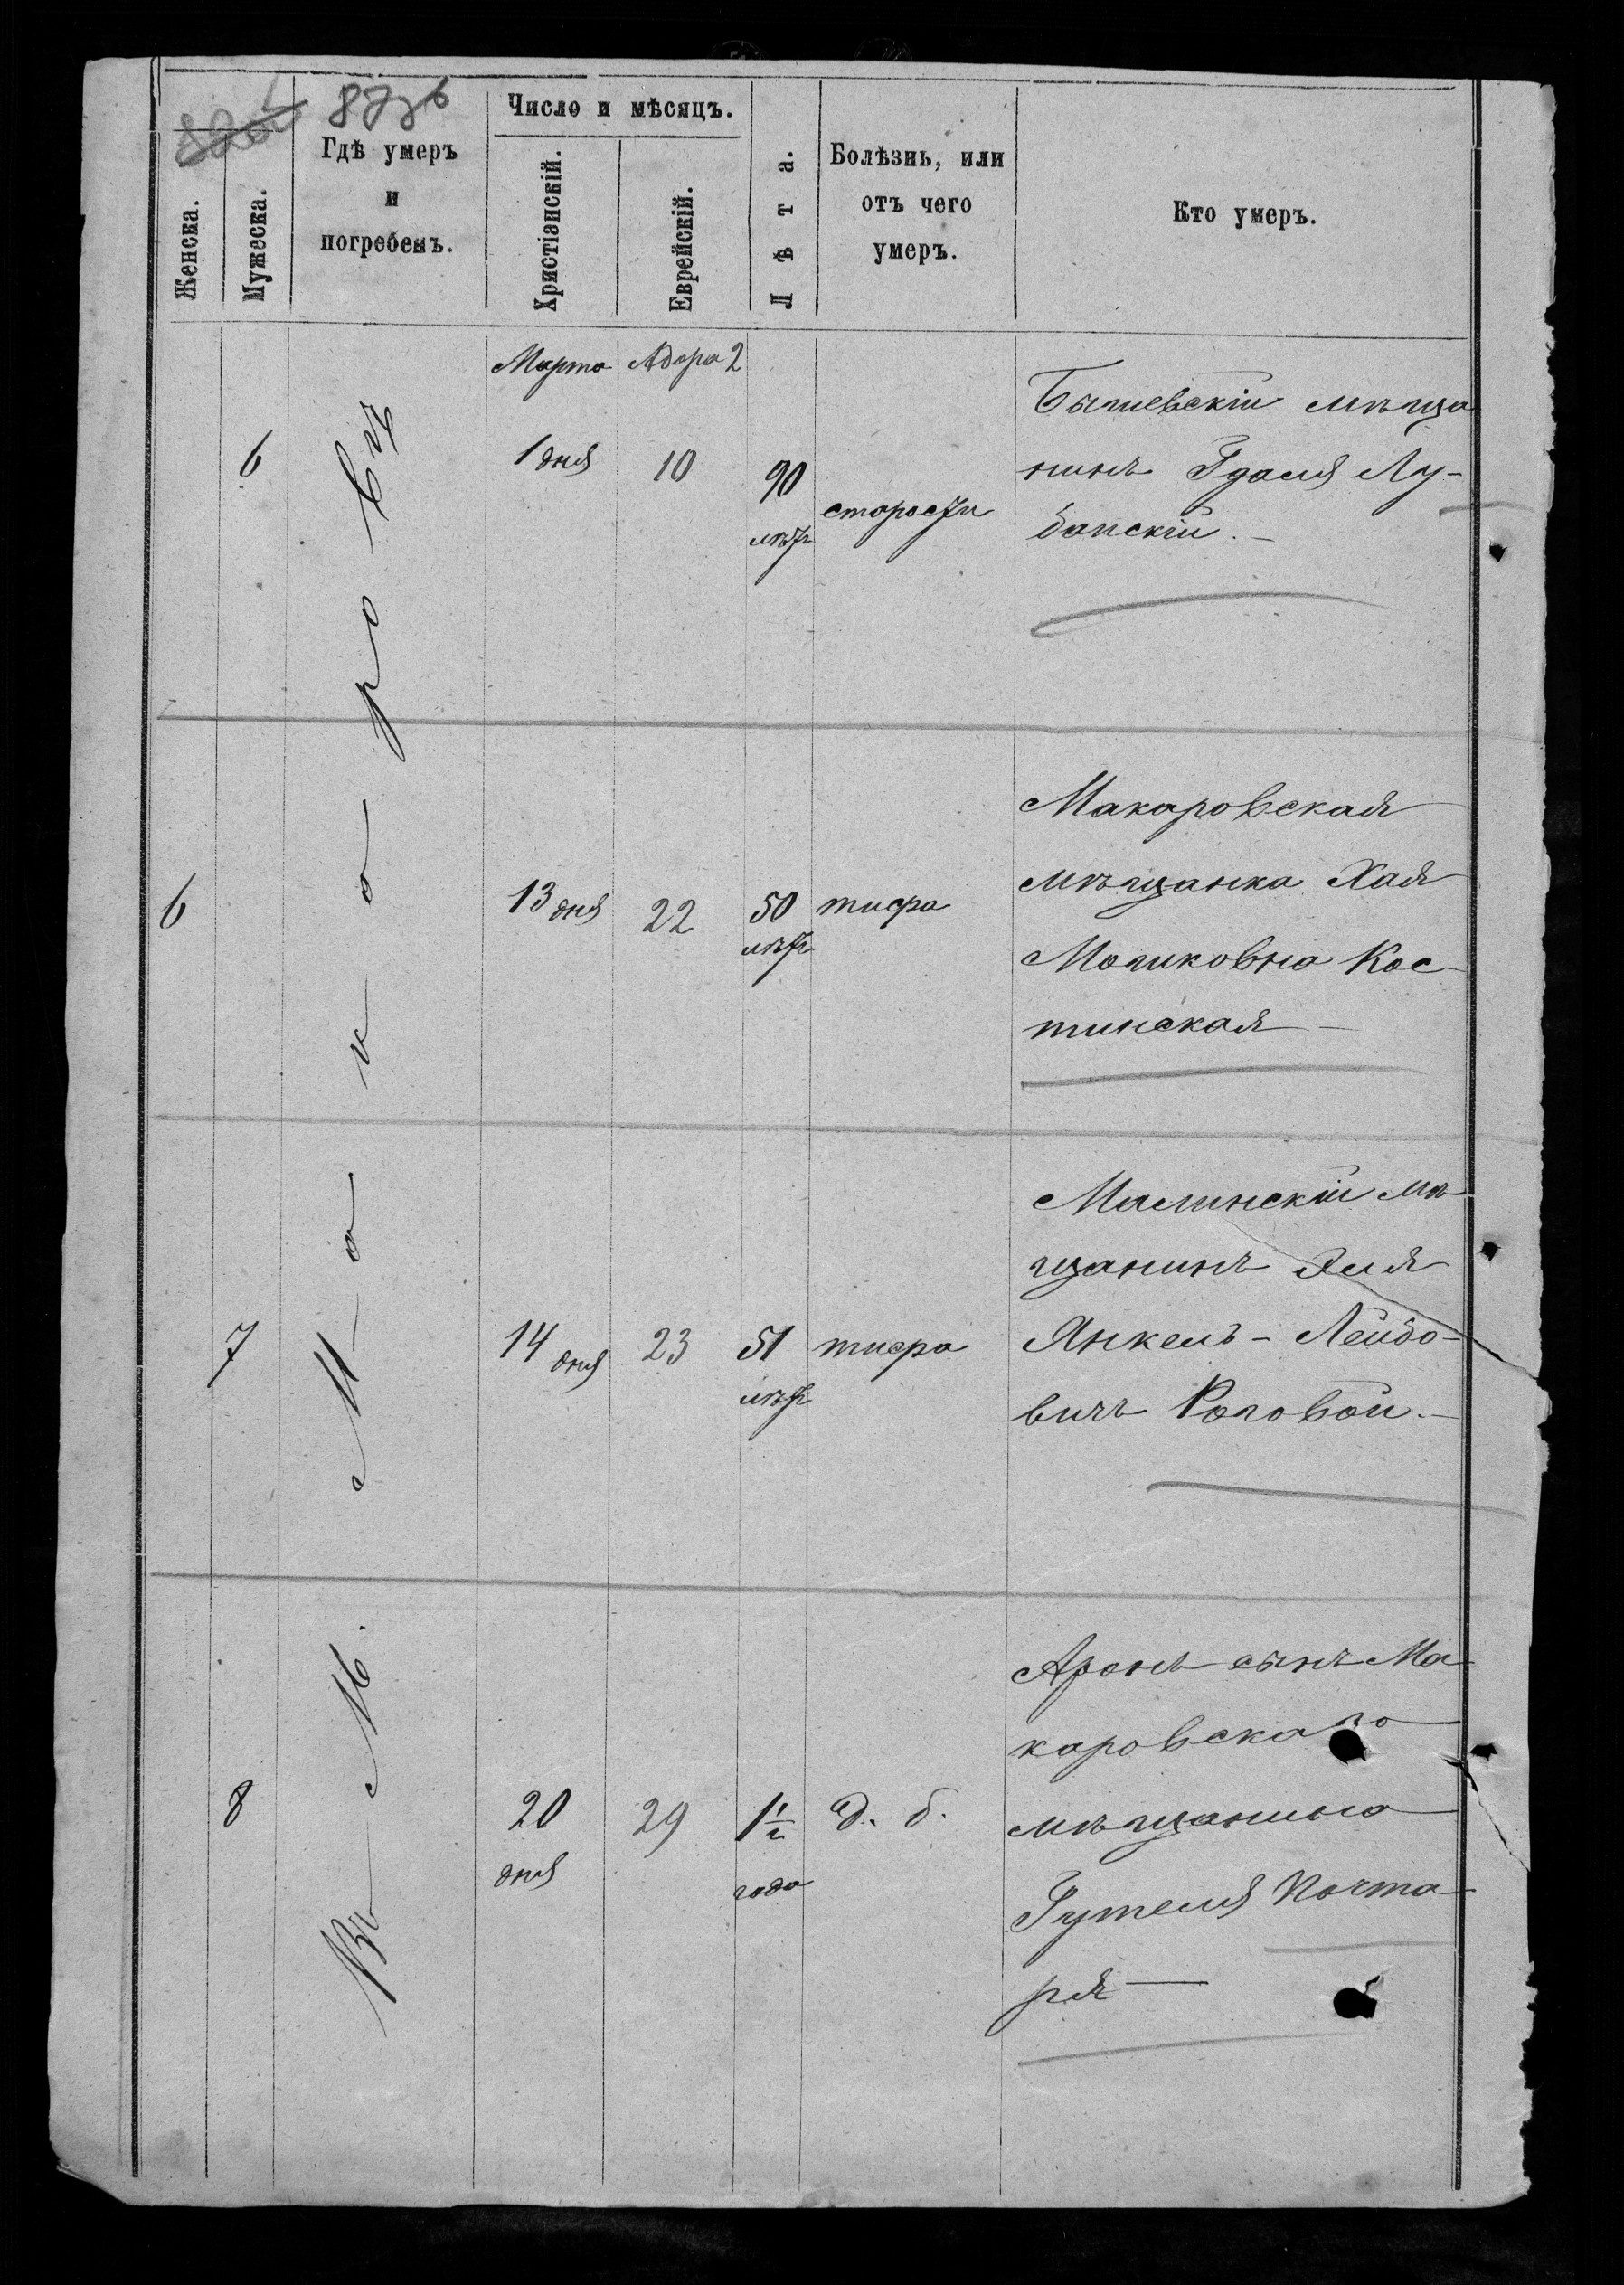 87 зв
Число и мѣсяцъ.
Женска.
Мужеска.
Гдѣ умеръ
и
погребенъ.
Христіанскій.
Еврейскій.
Лѣта.
Болѣзнь, или
отъ чего
умеръ.
Кто умеръ.
Въ М. Макаровѣ
Марта Адара 2
6 1 дня 10 90 лѣтъ старости
Бышевскій мѣща
нинъ Гдаля Лу-
банскій.
6 13 дня 22 50 лѣтъ тифа
Макаровская
мѣщанка Хая
Мошковна Кос-
тинская
7 14 дня 23 51 лѣтъ тифа
Малинскій мѣ
щанинъ Эля
Янкель-Лейбо-
вичъ Роговой.
8 20 дня 29 1 1/2 года д. б.
Аронъ сынъ Ма
каровскаго
мѣщанина
Гутеля Почта
ря